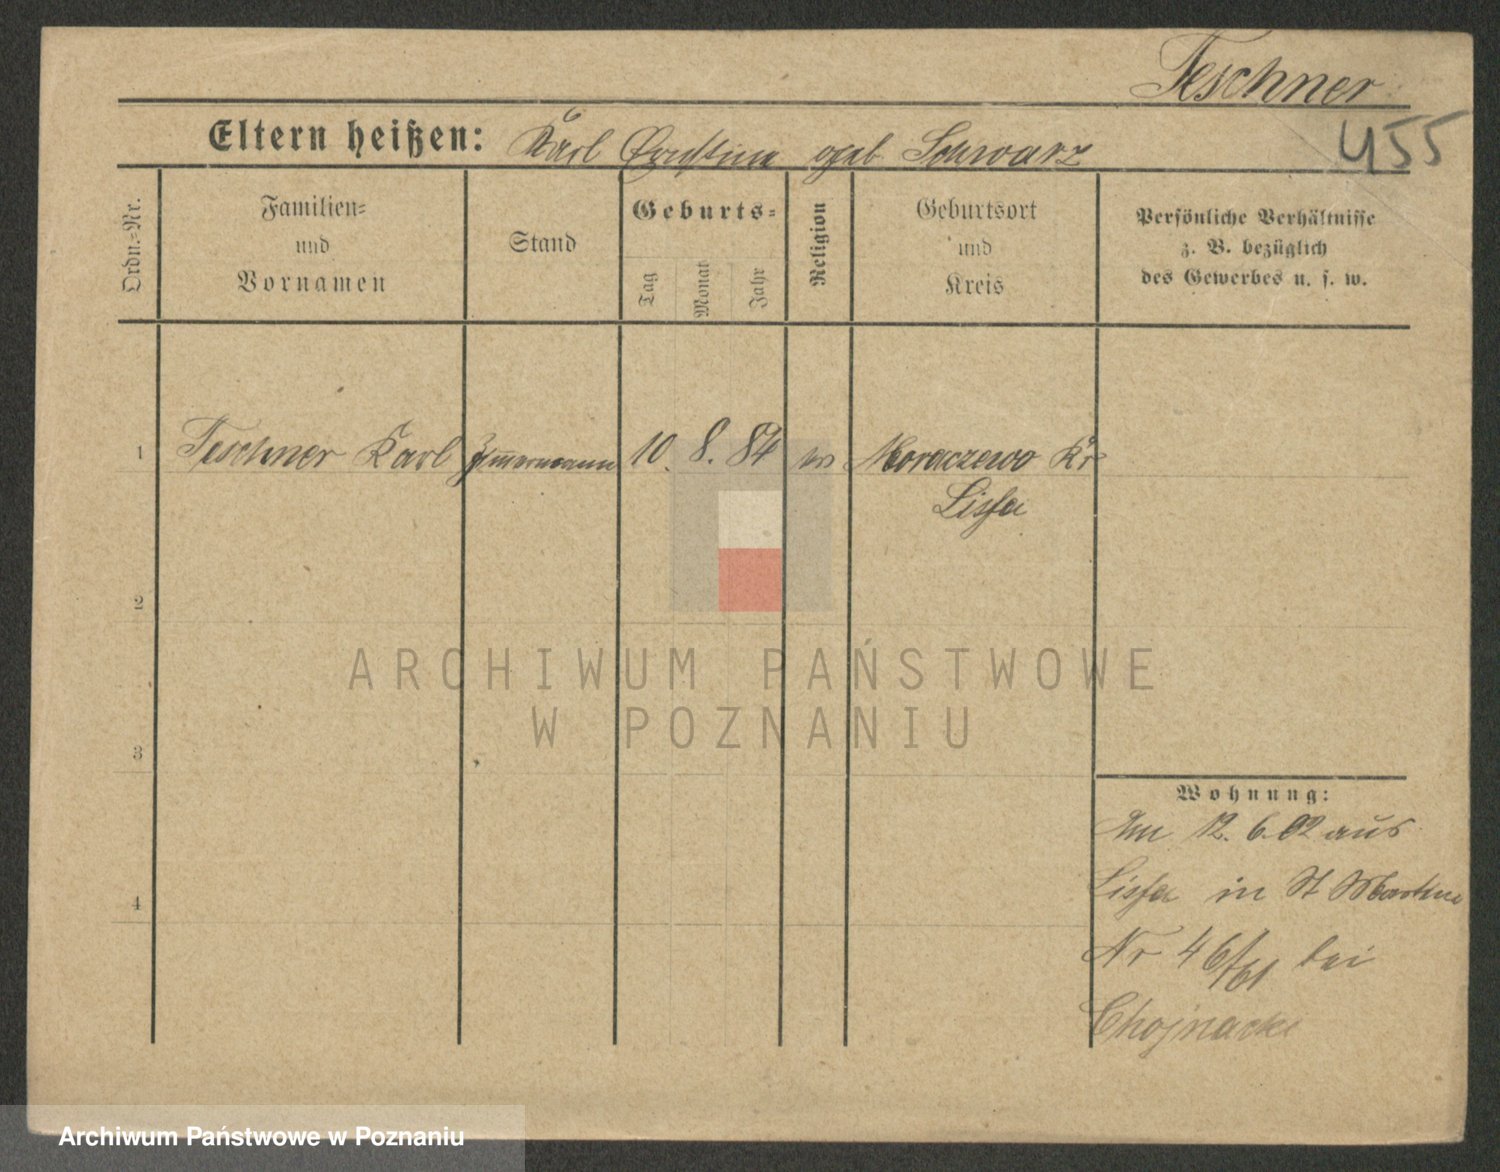 Teschner
455
Eltern heißen: Karl geb. Schwarz
Ordn.-Nr.
Familien-
und
Vornamen
Stand
Geburts-
Tag
Monat
Jahr
Religion
Geburtsort
und
Kreis
Persönliche Verhältnisse
z. B. bezüglich
des Gewerbes u. s. w.
1 Teschner Karl Zimmermann 10. 8. 84 ev Moraczewo Kr
Lissa
2
3
4
Wohnung:
Am 12. 6. 02 aus
Lissa in St Martin
Nr 46/61 bei
Chojnacki
ARCHIWUM PAŃSTWOWE
W POZNANIU
Archiwum Państwowe w Poznaniu